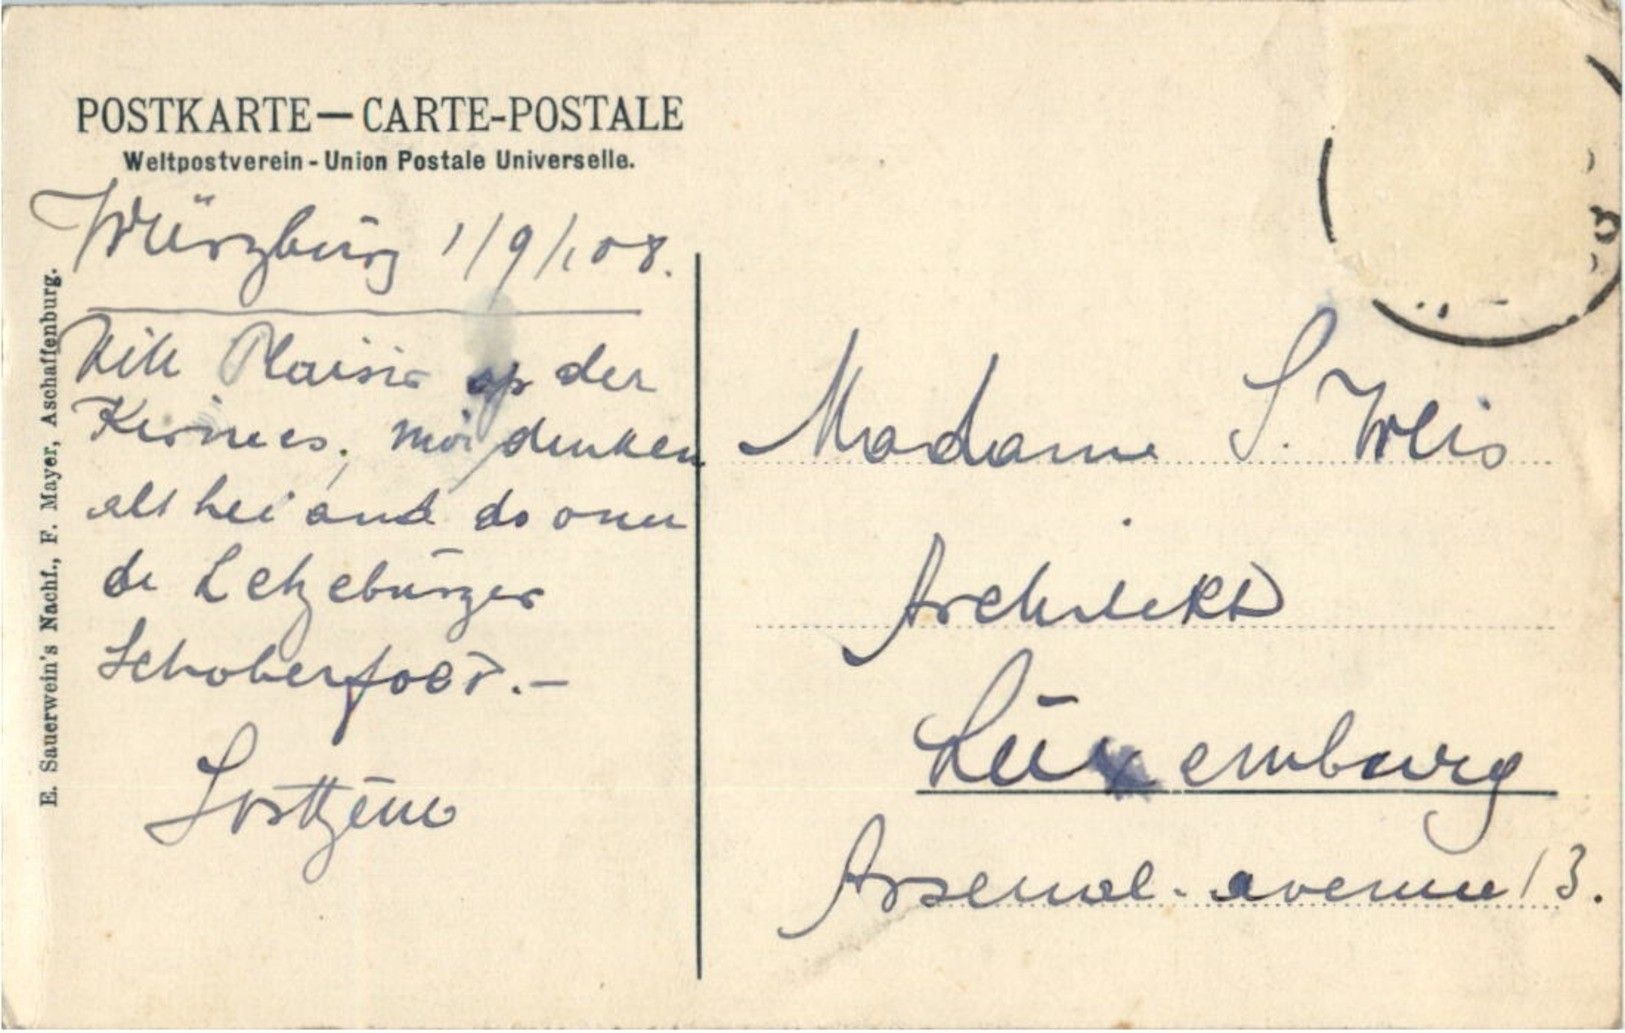 POSTKARTE — CARTE-POSTALE
Weltpostverein - Union Postale Universelle.
Würzburg 1/9/08.
Vill Plaisir op der
Kirmes. Mir denken
alt hei and do onn
de Letzeburger
Schoberfoer. —
E. Sauerwein's Nachf., F. Mayer, Aschaffenburg.
Madame S. Weis
Architekt
Luxemburg
Arsenal-avenue 13.